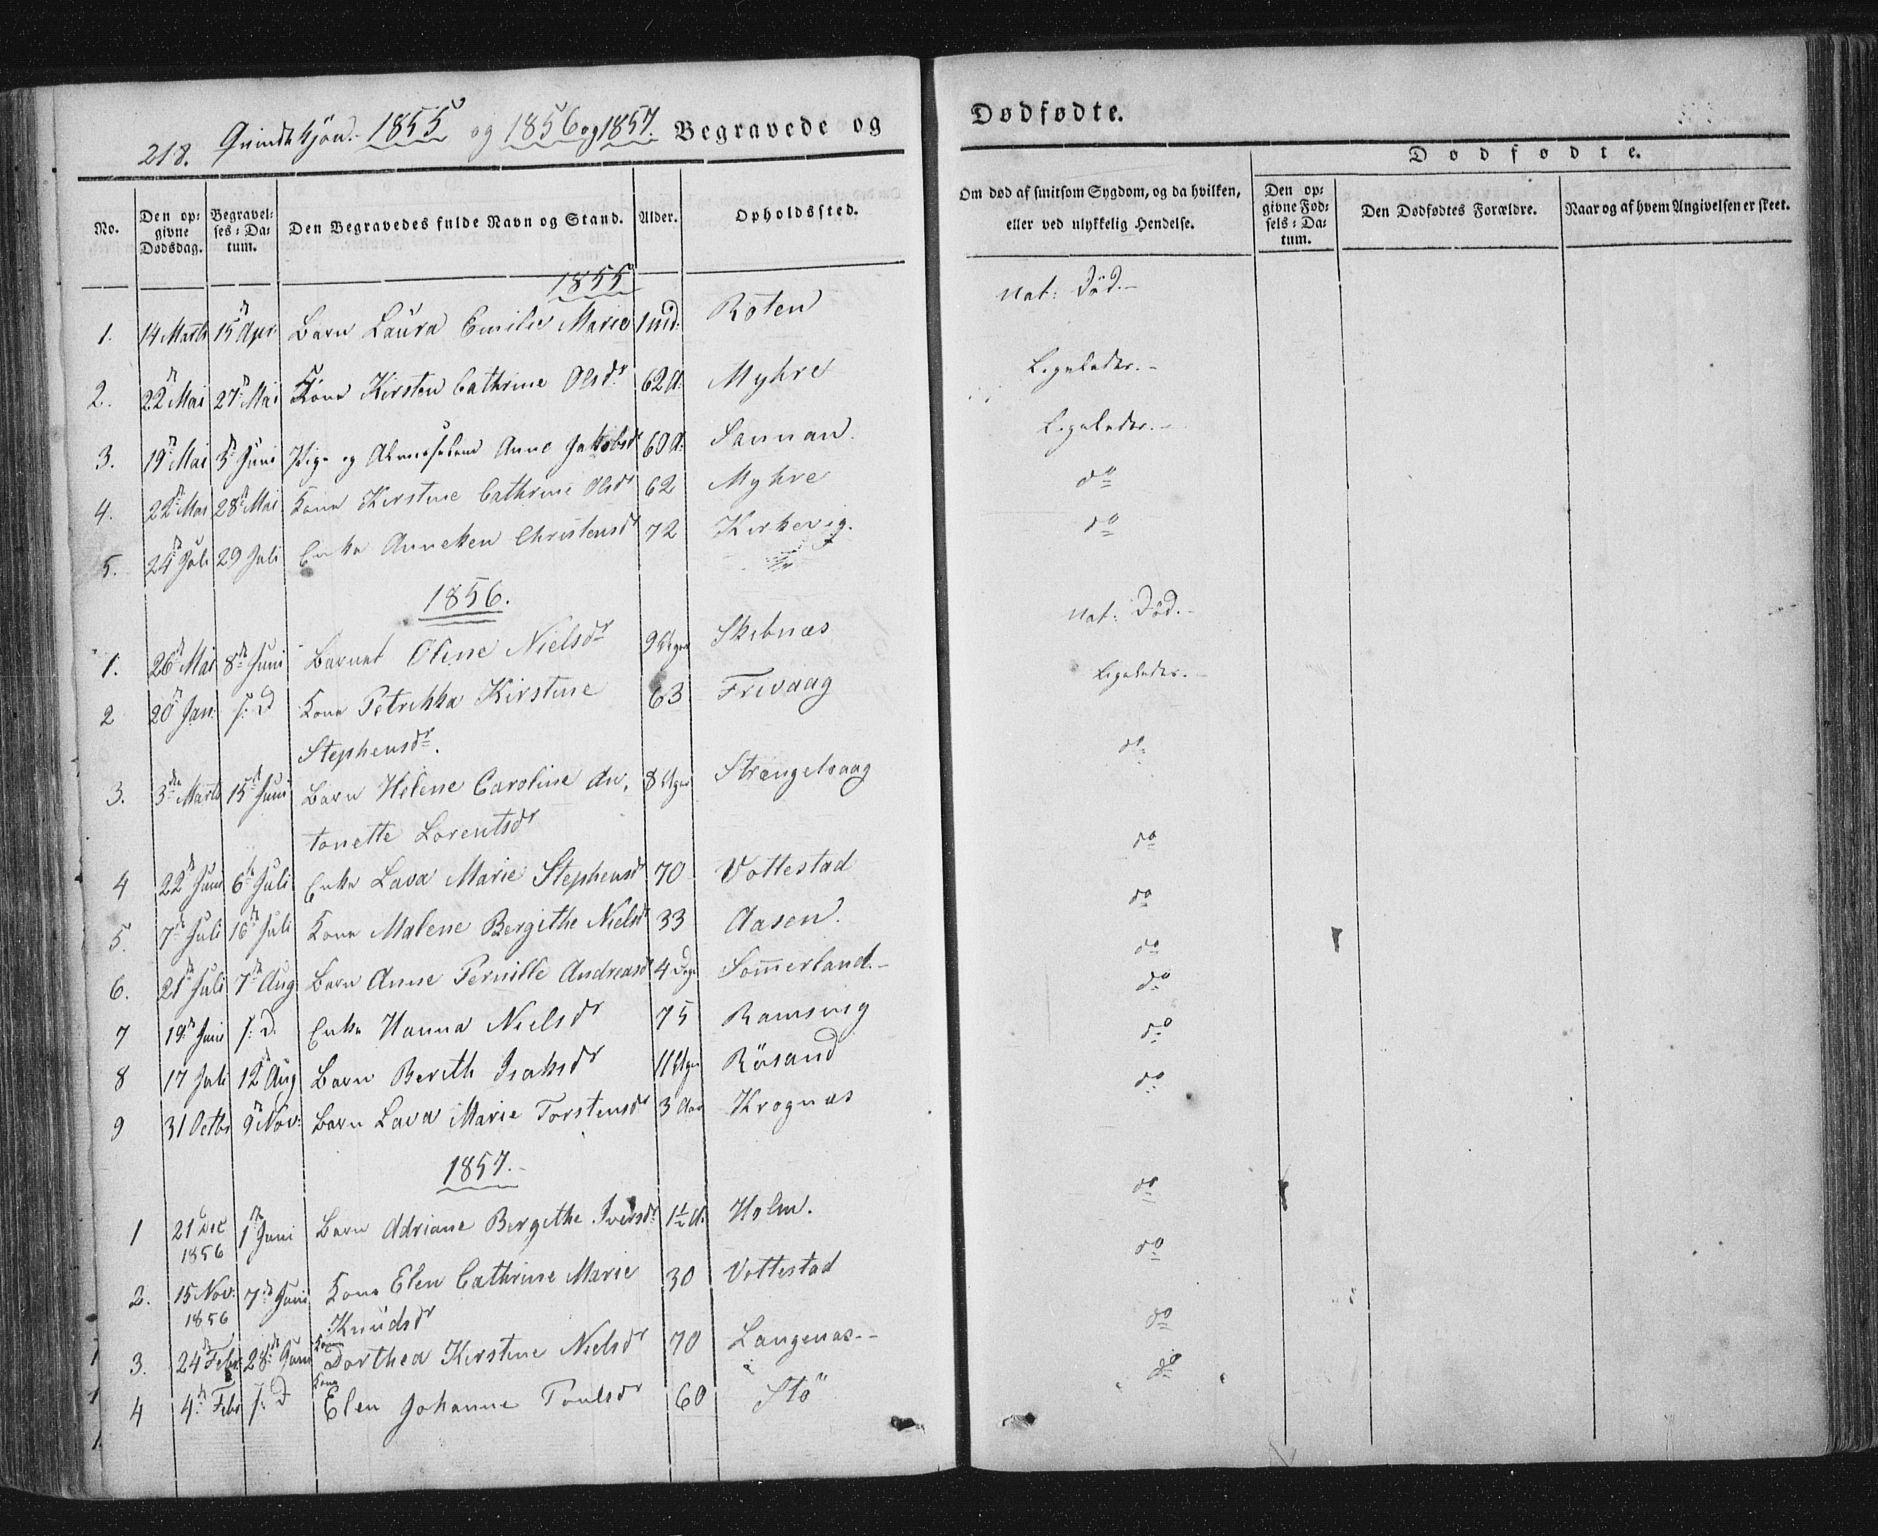 218. Qvindekjön. 1855 og 1856 og 1857. Begravede og
Dødfødte.
No.
Den opgivne Dødsdag.
Begravelses-Datum.
Den Begravedes fulde Navn og Stand.
Alder.
Opholdssted.
Om død af smitsom Sygdom, og da hvilken, eller ved ulykkelig Hendelse.
Dødfødte.
Den opgivne Fødsels-Datum.
Den Dødfødtes Forældre.
Naar og af hvem Angivelsen er skeet.
1855
1. 14 Marts 15de Apr Barn Laura Emilie Marie 1 md: Roten Nat: Död.-
2. 22de Mai 27de Mai Kone Kirsten Cathrine Olsdr 62 A. Myhre Ligeledes.-
3. 19de Mai 3de Juni Pige og Almuselem Anne Jakobsdr 60 A. Sannan. Ligeledes.-
4. 22de Mai 28de Mai Kone Kirstine Cathrine Olsdr 62 Myhre do
5. 24de Juli 29 Juli Enke Anneken Christensdr 72 Kirkevig. do
1856.
1. 26de Mai 8de Juni Barnet Oline Nielsdr 9 Uger Skibnæs Nat: Död.-
2 20de Jan: s: D Kone Petrikka Kirstine 63 Frevaag Ligeledes.-
Stephensdr.
3. 3die Marts 15de Juni Barn Helene Caroline An- 8 Uger Strengelvaag do
tonette Lorentsdr
4 22de Juni 6te Juli Enke Lava Marie Stephensdr 70 Vottestad do
5. 7de Juli 16de Juli Kone Malene Bergithe Nielsdr 33 Aasen. do
6. 21de Juli 7de Aug Barn Anne Pernille Andreasdr 4 Dage Sommerland.- do
7 19de Juni s: D. Enke Hanna Nielsdr 75 Ramsvig do
8 17 Juli 12te Aug Barn Berith Isaksdr 11 Uger Rösand do
9 31 Octbr 9de Nov: Barn Lava Marie Torstensdr 3 Aar Krognæs do
1857.-
1 21 Dec 1ste Juni Barn Adriane Bergithe Iversdr 1½ A. Holm. do
1856
2. 15 Nov: 7de Juni Kone Elen Cathrine Marie 30 Vottestad do
1856 Knudsdr
3. 24de Febr. 28de Juni Kone Dorthea Kirstine Nielsdr 70 Langenæs.- do
4 4de Febr s: D Kone Elen Johanne Poulsdr 60 Stö do